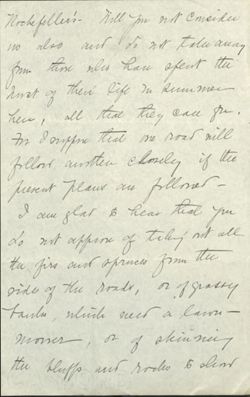 Rockefeller's - Will you not consider
us also and do not take away
from those who have spent the
best of their life in summer
here, all that they care for.
For I suppose that one road will
follow another closely if the
present plans are followed -
I am glad to hear that you
do not approve of taking out all
the firs and spruces from the
side of the roads, or of grassy
banks which need a lawn-
mower, or of skinning
the bluffs and rocks to show